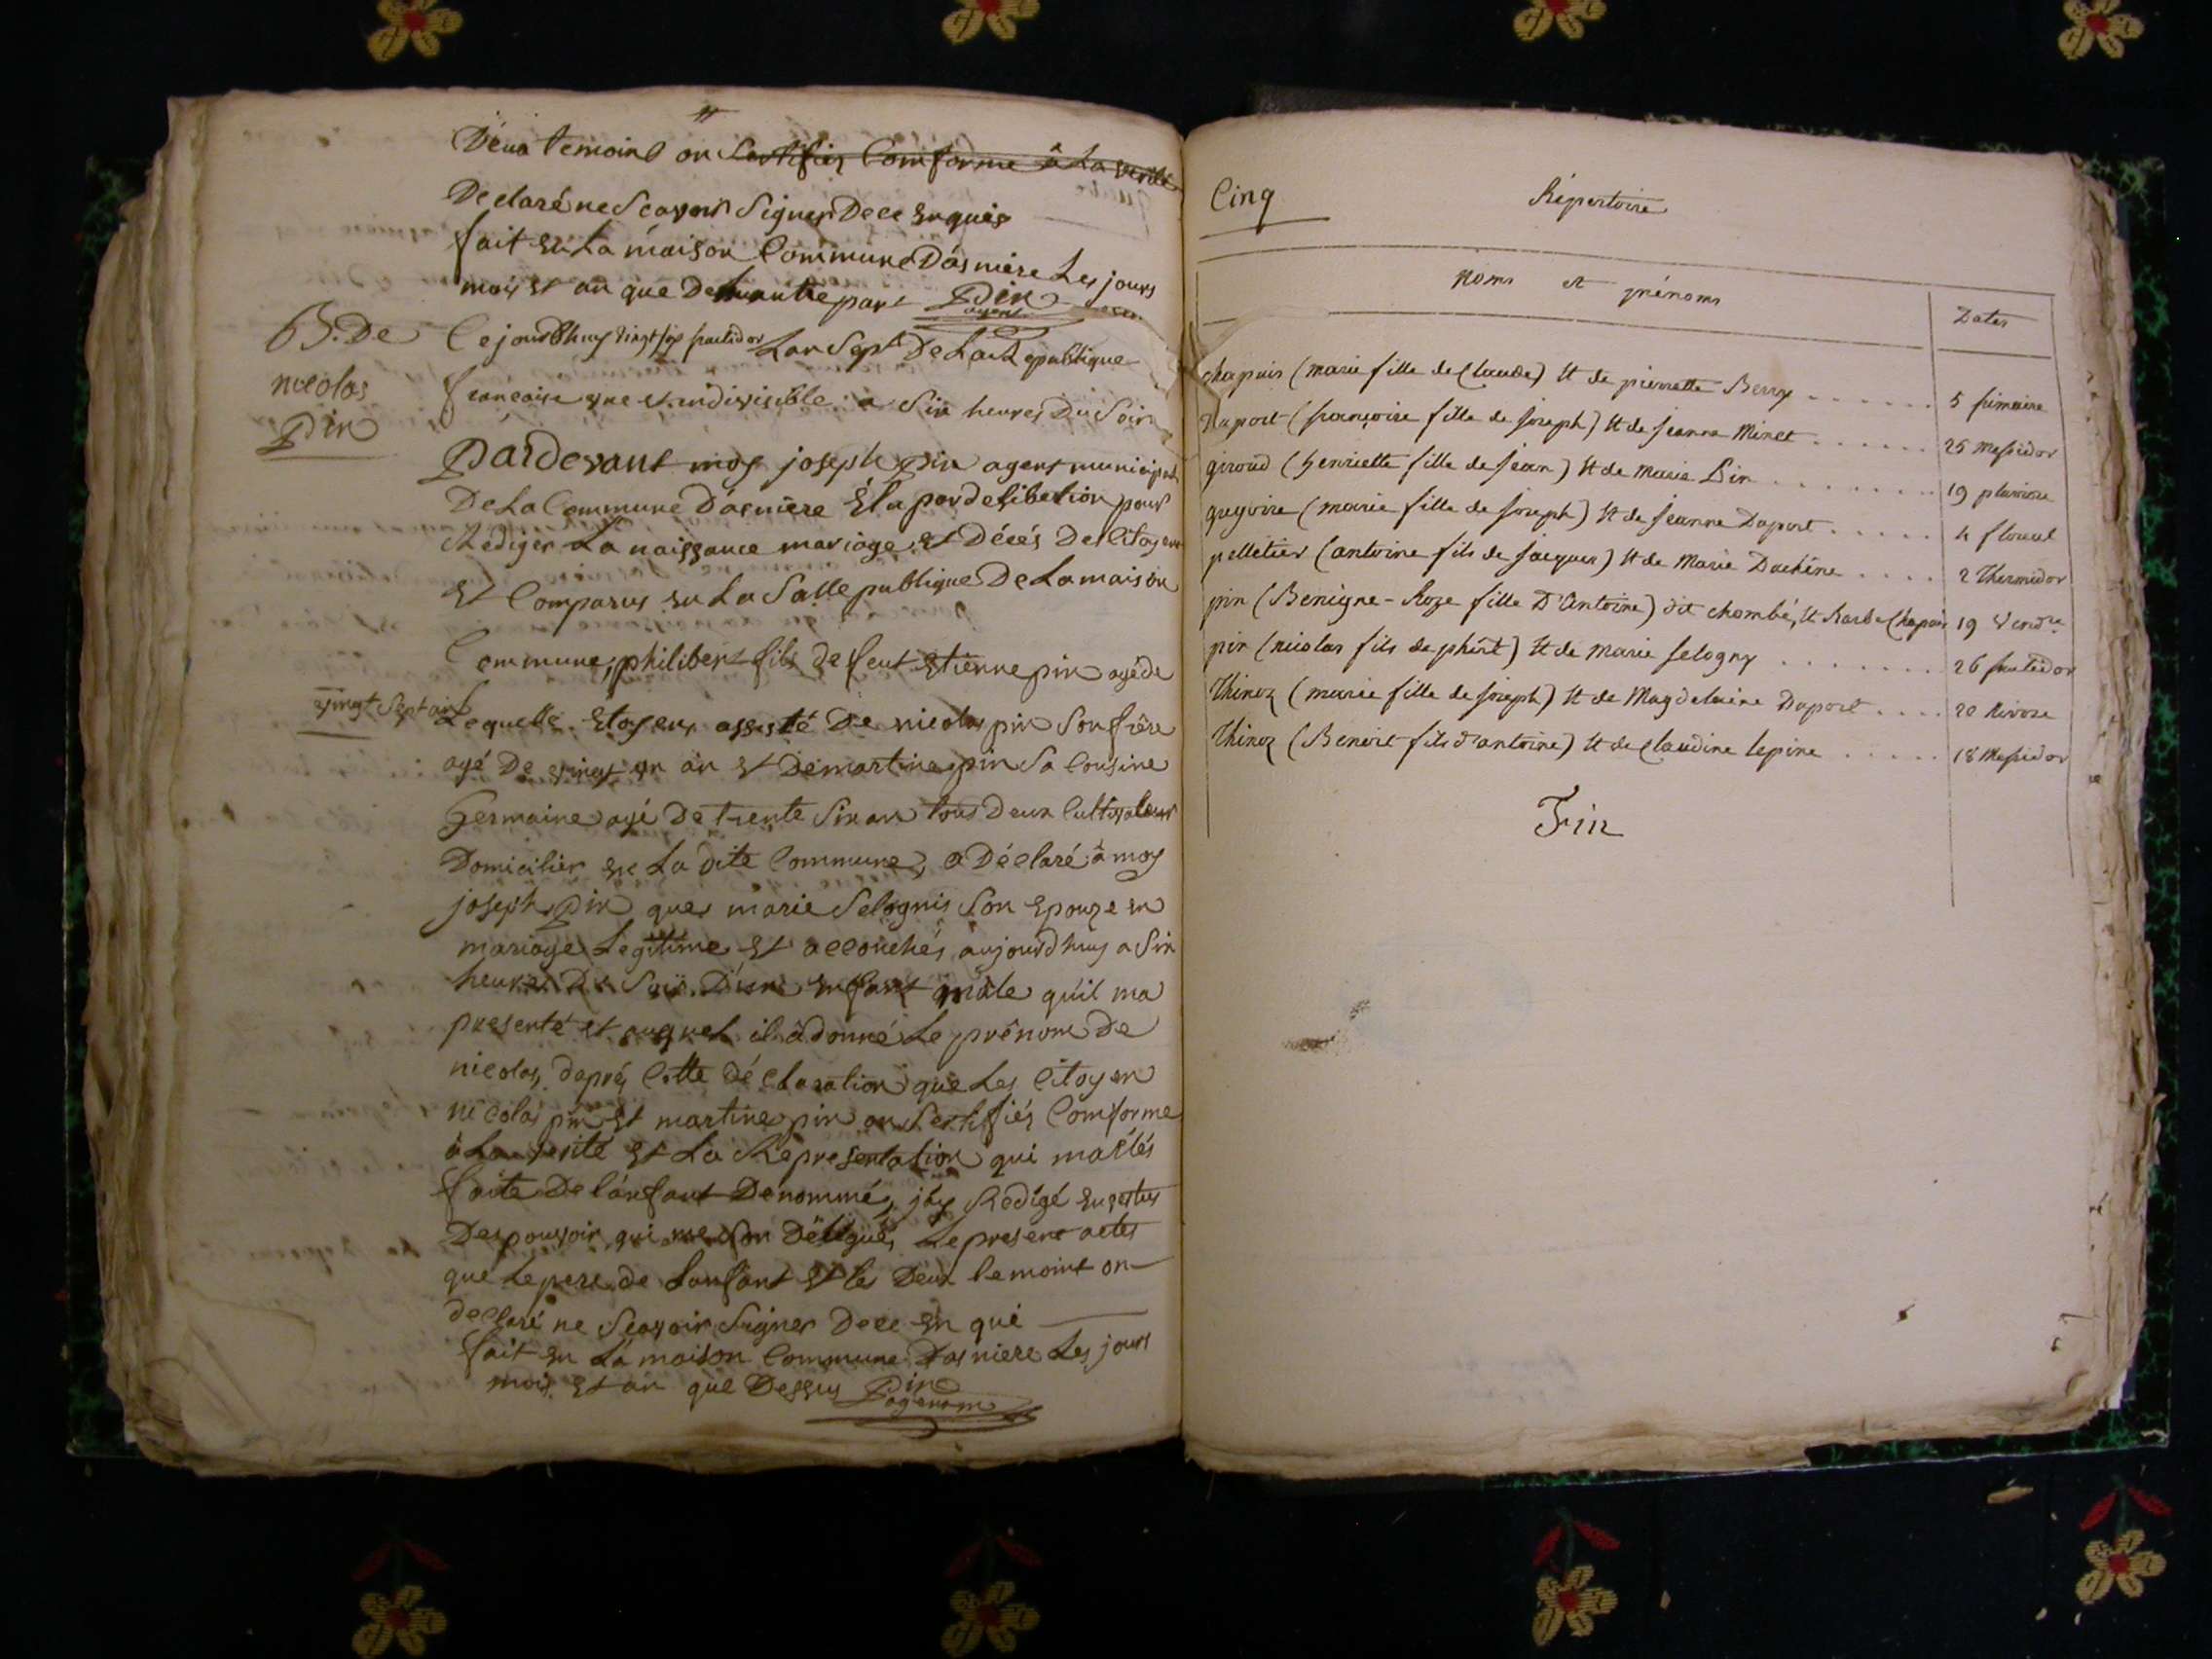 Deux temoins on Certifiez Comforme â La verité
Declaré ne Scavoir Signer De ce Enquis
fait En La maison Commune D'asniere Les jours
mois Et an que De lautre part Pin
agent
B. De
nicolas
Pin
Cejourdhuy vingt six fructidor Lan Sept De La Republique
francaise une et indivisible a Six heures Du Soir
Pardevant moy joseph pin agent municipal
De La Commune D'asniere Élu par deliberation pour
Rediger La naissance mariage Et Décés Des Citoyens
Et Comparus En La Salle publique De La maison
Commune, philibert fils de feut Etienne pin agé de
vingt Sept ans
Lequelle Citoyen assisté De nicolas pin Son frère
agé De vingt un an Et De martine pin Sa Cousine
Germaine agé De trente Six an tous Deux Cultivateur
Domicilier En La dite Commune, a Déclaré â moy
joseph Pin que marie Selognis Son Epouze en
mariage Legitime Et accouchés aujourdhuy a Six
heures Du Soir D'une Enfant mâle quil ma
presenté et auquel il â donné Le prênom De
nicolas, daprés Cette déclaration que Les Citoyen
nicolas pin Et martine pin on Certifiés Comforme
â La verité Et La Representation qui ma Etés
faite De lénfant Denommé, jáy Redigé En vertus
Des pouvoir qui me Son Délegués Le present actes
que Le pere de Lenfant Et les Deux temoint on
declaré ne Scavoir Signer De ce En qui
fait En La maison Commune Dasniere Les jours
mois Et an que Dessus Pin
agent m
Cinq
Répertoire
noms et prénoms
Dates
chapuis (marie fille de Claude) Et de pierrette Berry . . . . . . 5 frimaire
Duport (françoise fille de joseph) Et de jeanne Minet . . . . . . 25 Messidor
giroud (henriette fille de jean) Et de Marie Pin . . . . . . . . 19 pluviose
gregoire (marie fille de joseph) Et de jeanne Duport . . . . . 4 floreal
pelletier (antoine fils de jacques) Et de Marie Duchêne . . . . 2 Thermidor
pin (Benigne-Roze fille D'Antoine) dit chombé, Et Barbe Chapuis 19 Vendre
pin (nicolas fils de phibt) Et de marie selogny . . . . . . . . 26 fructidor
Thinoz (marie fille de joseph) Et de Magdelaine Duport . . . . 20 Nivose
Thinoz (Benoit fils d'antoine) Et de Claudine lepine . . . . . 18 Messidor
Fin